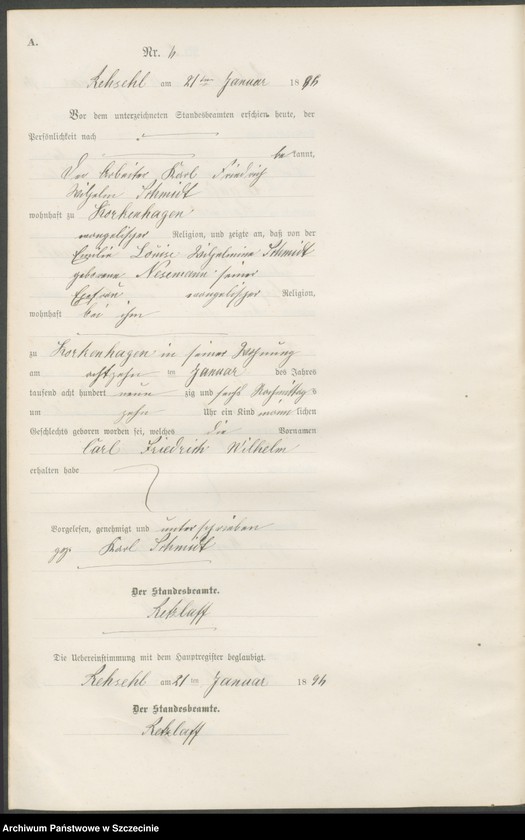 A.
Nr. 4
Rehsehl am 21ten Januar 1896
Vor dem unterzeichneten Standesbeamten erschien heute, der
Persönlichkeit nach
bekannt,
Der Arbeiter Karl Friedrich
Wilhelm Schmidt
wohnhaft zu Korkenhagen
evangelischer Religion, und zeigte an, daß von der
Emilie Louise Wilhelmine Schmidt
geborene Nesemann seiner
Ehefrau, evangelischer Religion,
wohnhaft bei ihm
zu Korkenhagen in seiner Wohnung
am achtzehn ten Januar des Jahres
tausend acht hundert neun zig und sechs Nachmittags
um zehn Uhr ein Kind männlichen
Geschlechts geboren worden sei, welches die Vornamen
Carl Friedrich Wilhelm
erhalten habe
Vorgelesen, genehmigt und unterschrieben
gez. Karl Schmidt
Der Standesbeamte.
Retzlaff
Die Uebereinstimmung mit dem Hauptregister beglaubigt.
Rehsehl am 21ten Januar 1896
Der Standesbeamte.
Retzlaff
Archiwum Państwowe w Szczecinie